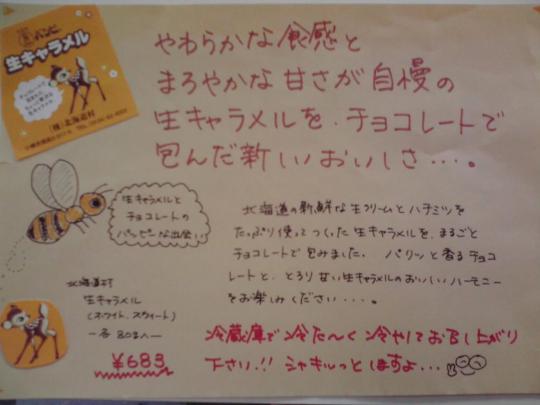 バンビ
生キャラメル
(株)北海道村
やわらかな食感と
まろやかな甘さが自慢の
生キャラメルを、チョコレートで
包んだ新しいおいしさ・・・。
生キャラメルと
チョコレートの
ハッピーな出会い
北海道の新鮮な生クリームとハチミツを
たっぷり使ってつくった生キャラメルを、まるごと
チョコレートで包みました。パリッと香るチョコ
レートと、とろり甘い生キャラメルのおいしいハーモニー
をお楽しみください・・・・。
北海道村
生キャラメル
(ホワイト、スウィート)
ー各 80g入ー
¥683
冷蔵庫で冷た〜く冷やしてお召し上がり
下さい!! シャキルっとしますよ・・・